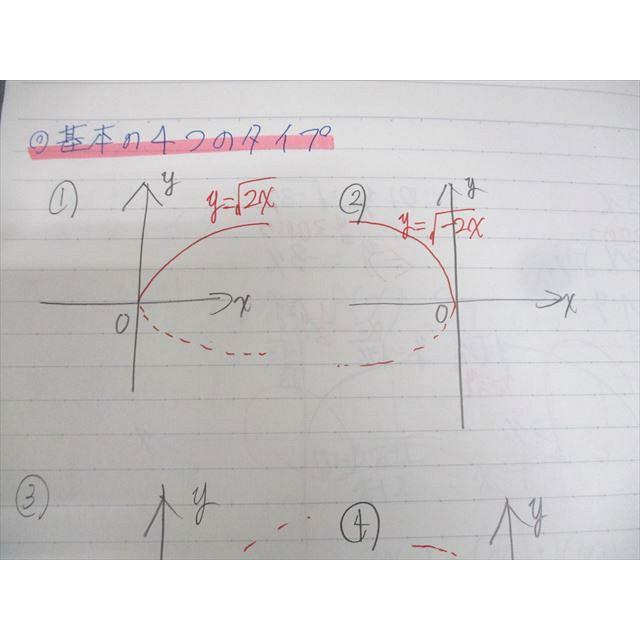 ◎基本の4つのタイプ
① y y=√2x
0 x
② y y=√-2x
0 x
③ y
④ y